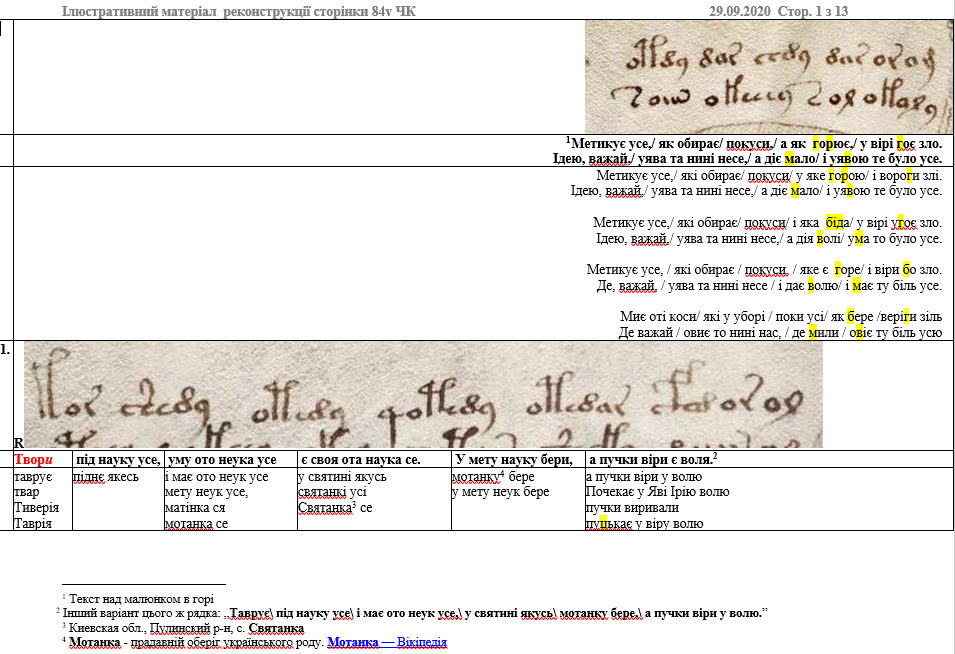 Ілюстративний матеріал реконструкції сторінки 84v ЧК 29.09.2020 Стор. 1 з 13
¹Метикує усе,/ як обирає/ покуси,/ а як горює,/ у вірі гоє зло.
Ідею, важай,/ уява та нині несе,/ а діє мало/ і уявою те було усе.
Метикує усе,/ які обирає/ покуси/ у яке горою/ і вороги злі.
Ідею, важай,/ уява та нині несе,/ а діє мало/ і уявою те було усе.
Метикує усе,/ які обирає/ покуси/ і яка біда/ у вірі угоє зло.
Ідею, важай,/ уява та нині несе,/ а дія волі/ ума то було усе.
Метикує усе, / які обирає / покуси, / яке є горе/ і віри бо зло.
Де, важай, / уява та нині несе / і дає волю/ і має ту біль усе.
Миє оті коси/ які у уборі / поки усі/ як бере /веріги зіль
Де важай / овиє то нині нас, / де мили / овіє ту біль усю
1.
R
Твори під науку усе, уму ото неука усе є своя ота наука се. У мету науку бери, а пучки віри є воля.²
таврує піднє якесь і має ото неук усе у святині якусь мотанку⁴ бере а пучки віри у волю
твар мету неук усе, святанкі усі у мету неук бере Почекає у Яві Ірію волю
Тиверія матінка ся Святанка³ се пучки виривали
Таврія мотанка се пуцькає у віру волю
¹ Текст над малюнком в горі
² Інший варіант цього ж рядка: „Таврує\ під науку усе\ і має ото неук усе,\ у святині якусь\ мотанку бере,\ а пучки віри у волю.”
³ Киевская обл., Пулинский р-н, с. Святанка
⁴ Мотанка - прадавній оберіг українського роду. Мотанка — Вікіпедія